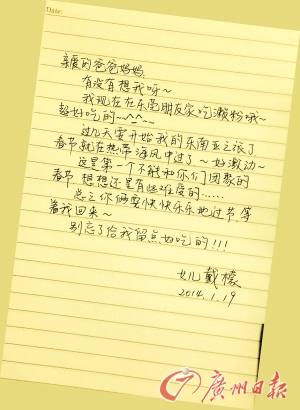 Date:
亲爱的爸爸妈妈
有没有想我呀~
我现在在东莞朋友家吃濑粉哦~
超好吃的~^^~~
过几天要开始我的东南亚之旅了
春节就在热带海风中过了~好激动~
这是第一个不能和你们团聚的
春节 想想还是有些难度的……
总之你俩要快快乐乐地过节 等
着我回来~
别忘了给我留点好吃的!!!
女儿 戴檬
2014.1.19
广州日报